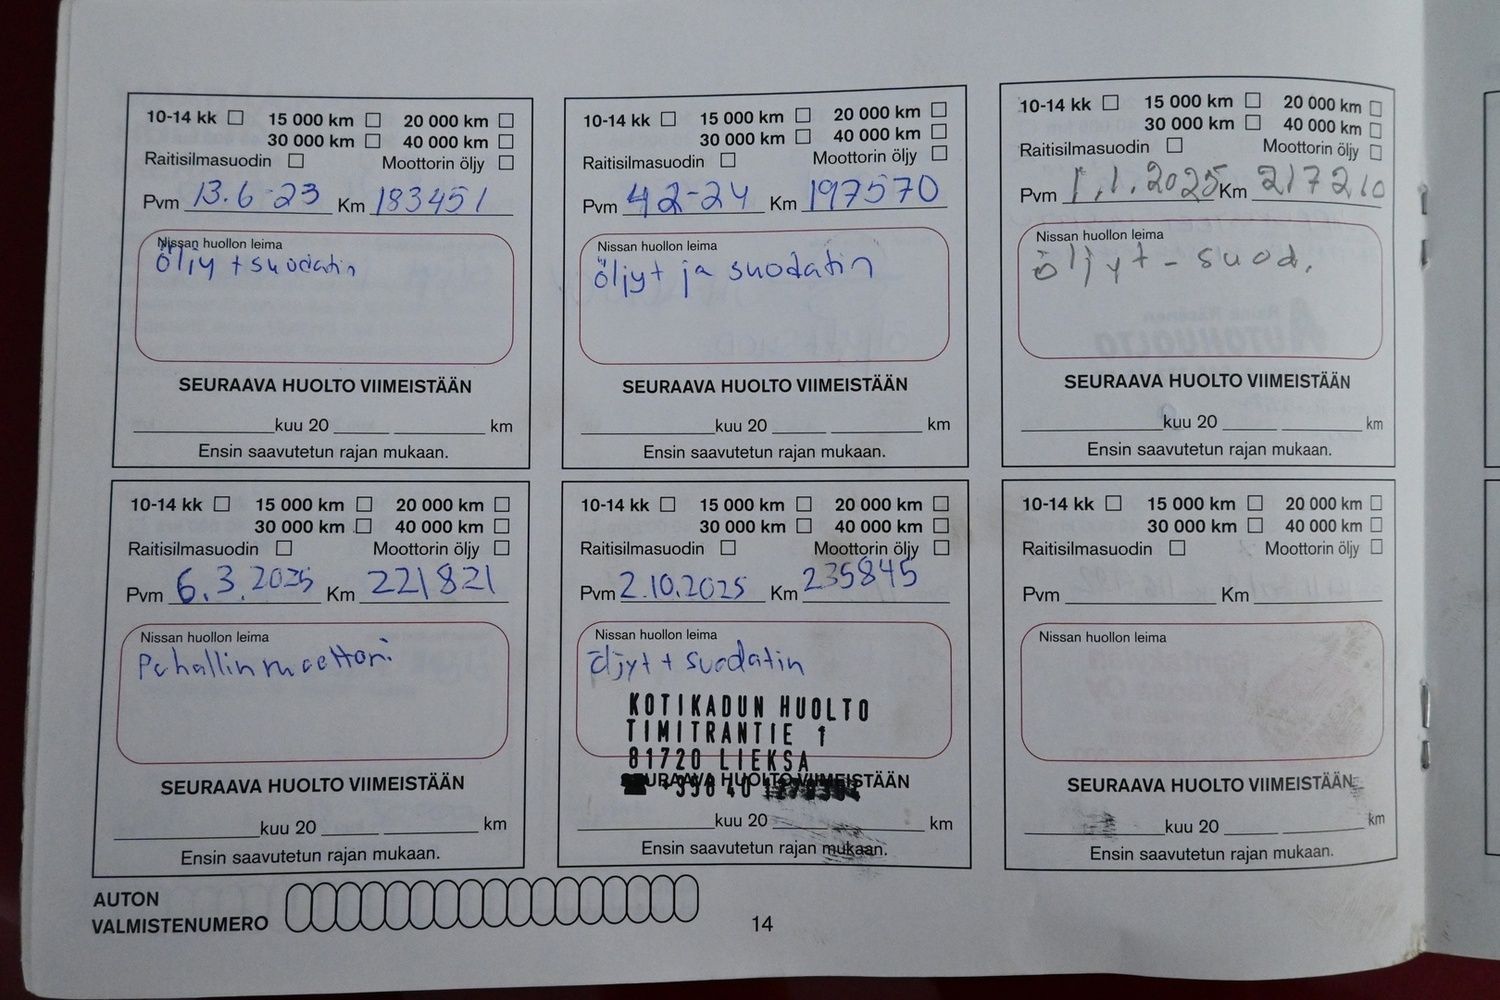 10-14 kk 15 000 km 20 000 km
30 000 km 40 000 km
Raitisilmasuodin Moottorin öljy
Pvm 13.6-23 Km 183451
Nissan huollon leima
öljy + suodatin
SEURAAVA HUOLTO VIIMEISTÄÄN
kuu 20 km
Ensin saavutetun rajan mukaan.
10-14 kk 15 000 km 20 000 km
30 000 km 40 000 km
Raitisilmasuodin Moottorin öljy
Pvm 4.2-24 Km 197570
Nissan huollon leima
öljyt ja suodatin
SEURAAVA HUOLTO VIIMEISTÄÄN
kuu 20 km
Ensin saavutetun rajan mukaan.
10-14 kk 15 000 km 20 000 km
30 000 km 40 000 km
Raitisilmasuodin Moottorin öljy
Pvm 1.1.2025 Km 217210
Nissan huollon leima
öljyt - suod.
SEURAAVA HUOLTO VIIMEISTÄÄN
kuu 20 km
Ensin saavutetun rajan mukaan.
10-14 kk 15 000 km 20 000 km
30 000 km 40 000 km
Raitisilmasuodin Moottorin öljy
Pvm 6.3.2025 Km 221821
Nissan huollon leima
Puhallinmoottori
SEURAAVA HUOLTO VIIMEISTÄÄN
kuu 20 km
Ensin saavutetun rajan mukaan.
10-14 kk 15 000 km 20 000 km
30 000 km 40 000 km
Raitisilmasuodin Moottorin öljy
Pvm 2.10.2025 Km 235845
Nissan huollon leima
öljyt + suodatin
KOTIKADUN HUOLTO
TIMITRANTIE 1
81720 LIEKSA
SEURAAVA HUOLTO VIIMEISTÄÄN
+358 40
kuu 20 km
Ensin saavutetun rajan mukaan.
10-14 kk 15 000 km 20 000 km
30 000 km 40 000 km
Raitisilmasuodin Moottorin öljy
Pvm Km
Nissan huollon leima
SEURAAVA HUOLTO VIIMEISTÄÄN
kuu 20 km
Ensin saavutetun rajan mukaan.
AUTON
VALMISTENUMERO
14